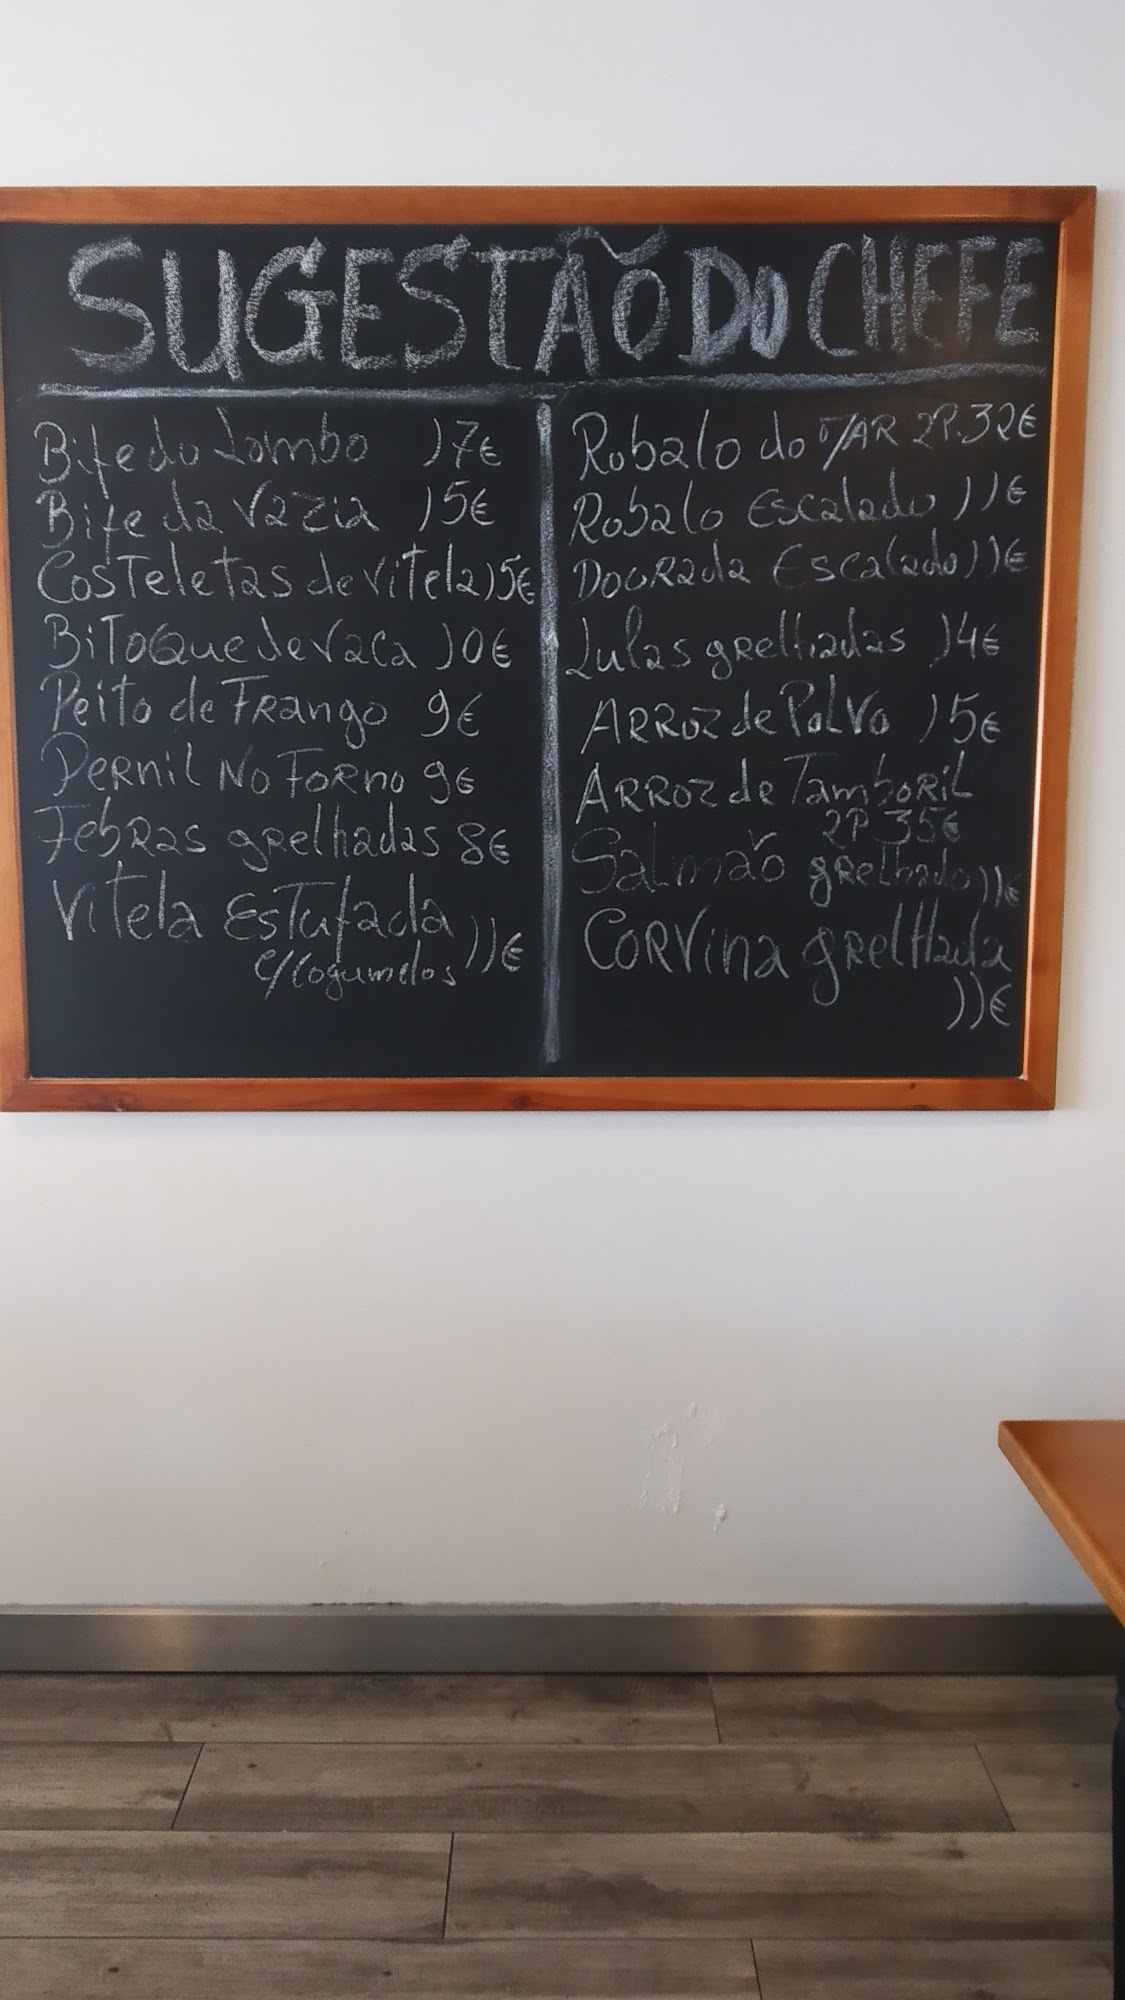 SUGESTÃO DO CHEFE
Bife do Lombo 17€
Bife da Vazia 15€
Costeletas de vitela 15€
Bitoque de Vaca 10€
Peito de Frango 9€
Pernil No Forno 9€
Febras grelhadas 8€
Vitela Estufada 11€
c/cogumelos
Robalo do MAR 2P. 32€
Robalo Escalado 11€
Dourada Escalado 11€
Lulas grelhadas 14€
Arroz de Polvo 15€
Arroz de Tamboril
2P 35€
Salmão grelhado 11€
Corvina grelhada
11€